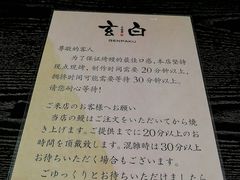 玄白
GENPAKU
尊敬的客人
为了保证烤鳗的最佳口感,本店坚持
现点现烤,制作时间需要20分钟以上,
拥挤时间可能需要等待30分钟以上。
请您耐心等待!
ご来店のお客様へお願い
当店の鰻はご注文をいただいてから焼
き上げます。ご提供までに20分以上のお
時間を頂戴致します。混雑時は30分以上
お待ちいただく場合もございます。
ごゆっくりとお待ちいただけましたら